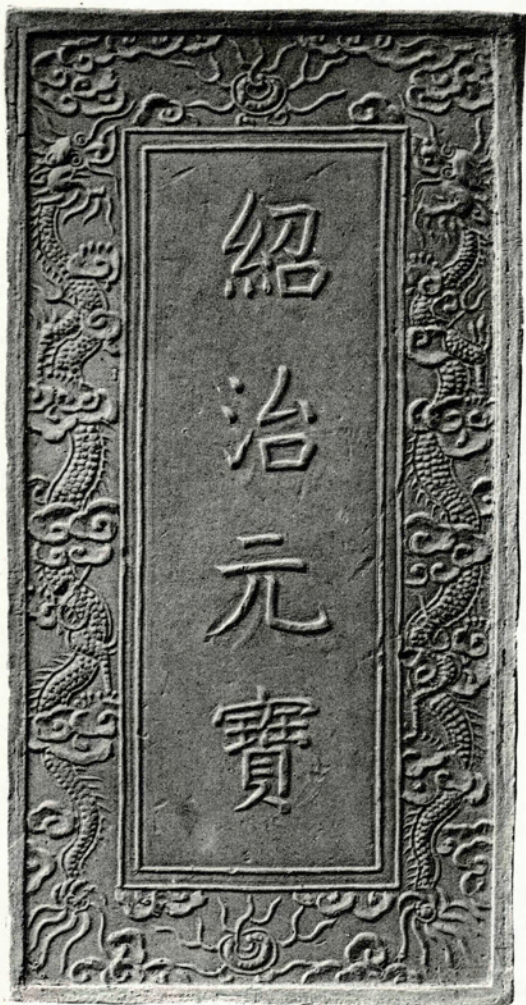 紹治元寶